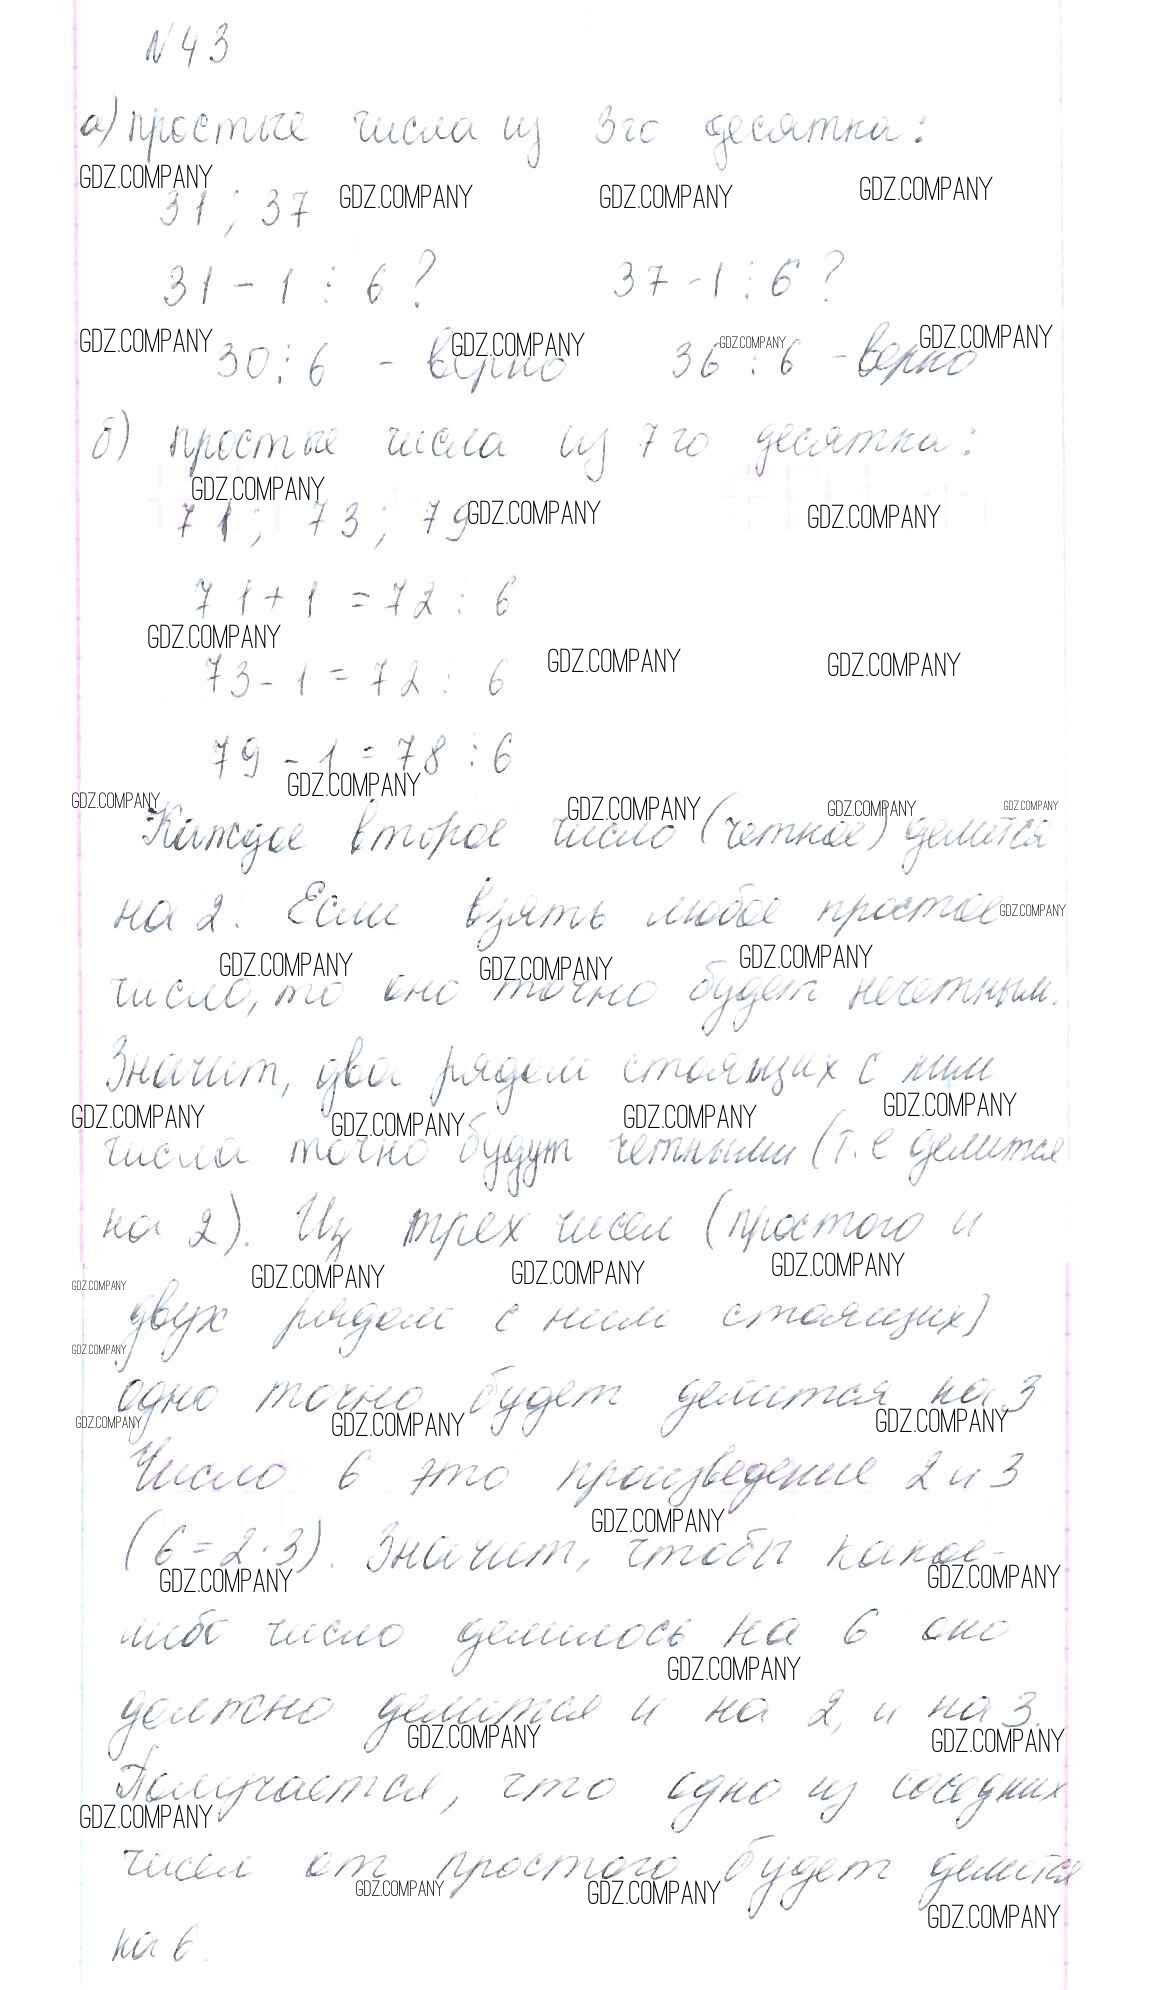 N 43
а) простые числа из 3го десятка:
GDZ.COMPANY GDZ.COMPANY GDZ.COMPANY GDZ.COMPANY
31 ; 37
31 - 1 ⋮ 6 ? 37 - 1 ⋮ 6 ?
GDZ.COMPANY GDZ.COMPANY GDZ.COMPANY GDZ.COMPANY
30 ⋮ 6 - верно 36 ⋮ 6 - верно
б) простые числа из 7го десятка:
GDZ.COMPANY GDZ.COMPANY GDZ.COMPANY
71; 73; 79
71 + 1 = 72 ⋮ 6
GDZ.COMPANY GDZ.COMPANY GDZ.COMPANY
73 - 1 = 72 ⋮ 6
79 - 1 = 78 ⋮ 6
GDZ.COMPANY GDZ.COMPANY GDZ.COMPANY GDZ.COMPANY GDZ.COMPANY
Каждое второе число (четное) делится
на 2. Если взять любое простое
GDZ.COMPANY
GDZ.COMPANY GDZ.COMPANY GDZ.COMPANY
число, то оно точно будет нечетным.
Значит, два рядом стоящих с ним
GDZ.COMPANY GDZ.COMPANY GDZ.COMPANY GDZ.COMPANY
числа точно будут четными (т.е делится
на 2). Из трех чисел (простого и
GDZ.COMPANY GDZ.COMPANY GDZ.COMPANY GDZ.COMPANY
двух рядом с ним стоящих)
GDZ.COMPANY
одно точно будет делится на 3
GDZ.COMPANY GDZ.COMPANY GDZ.COMPANY
Число 6 это произведение 2 и 3
GDZ.COMPANY
(6 = 2 · 3). Значит, чтобы какое-
GDZ.COMPANY GDZ.COMPANY
либо число делилось на 6 оно
GDZ.COMPANY
должно делится и на 2, и на 3.
GDZ.COMPANY GDZ.COMPANY
Получается, что одно из соседних
GDZ.COMPANY
чисел от простого будет делится
GDZ.COMPANY GDZ.COMPANY GDZ.COMPANY
на 6.